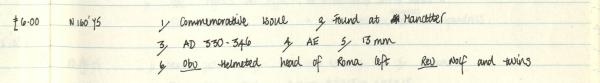 £6.00 N160'45 1/ Commemorative issue 2/ Found at Mancetter
3/ AD 330-346 4/ AE 5/ 13mm
6/ Obv Helmeted head of Roma left Rev Wolf and twins